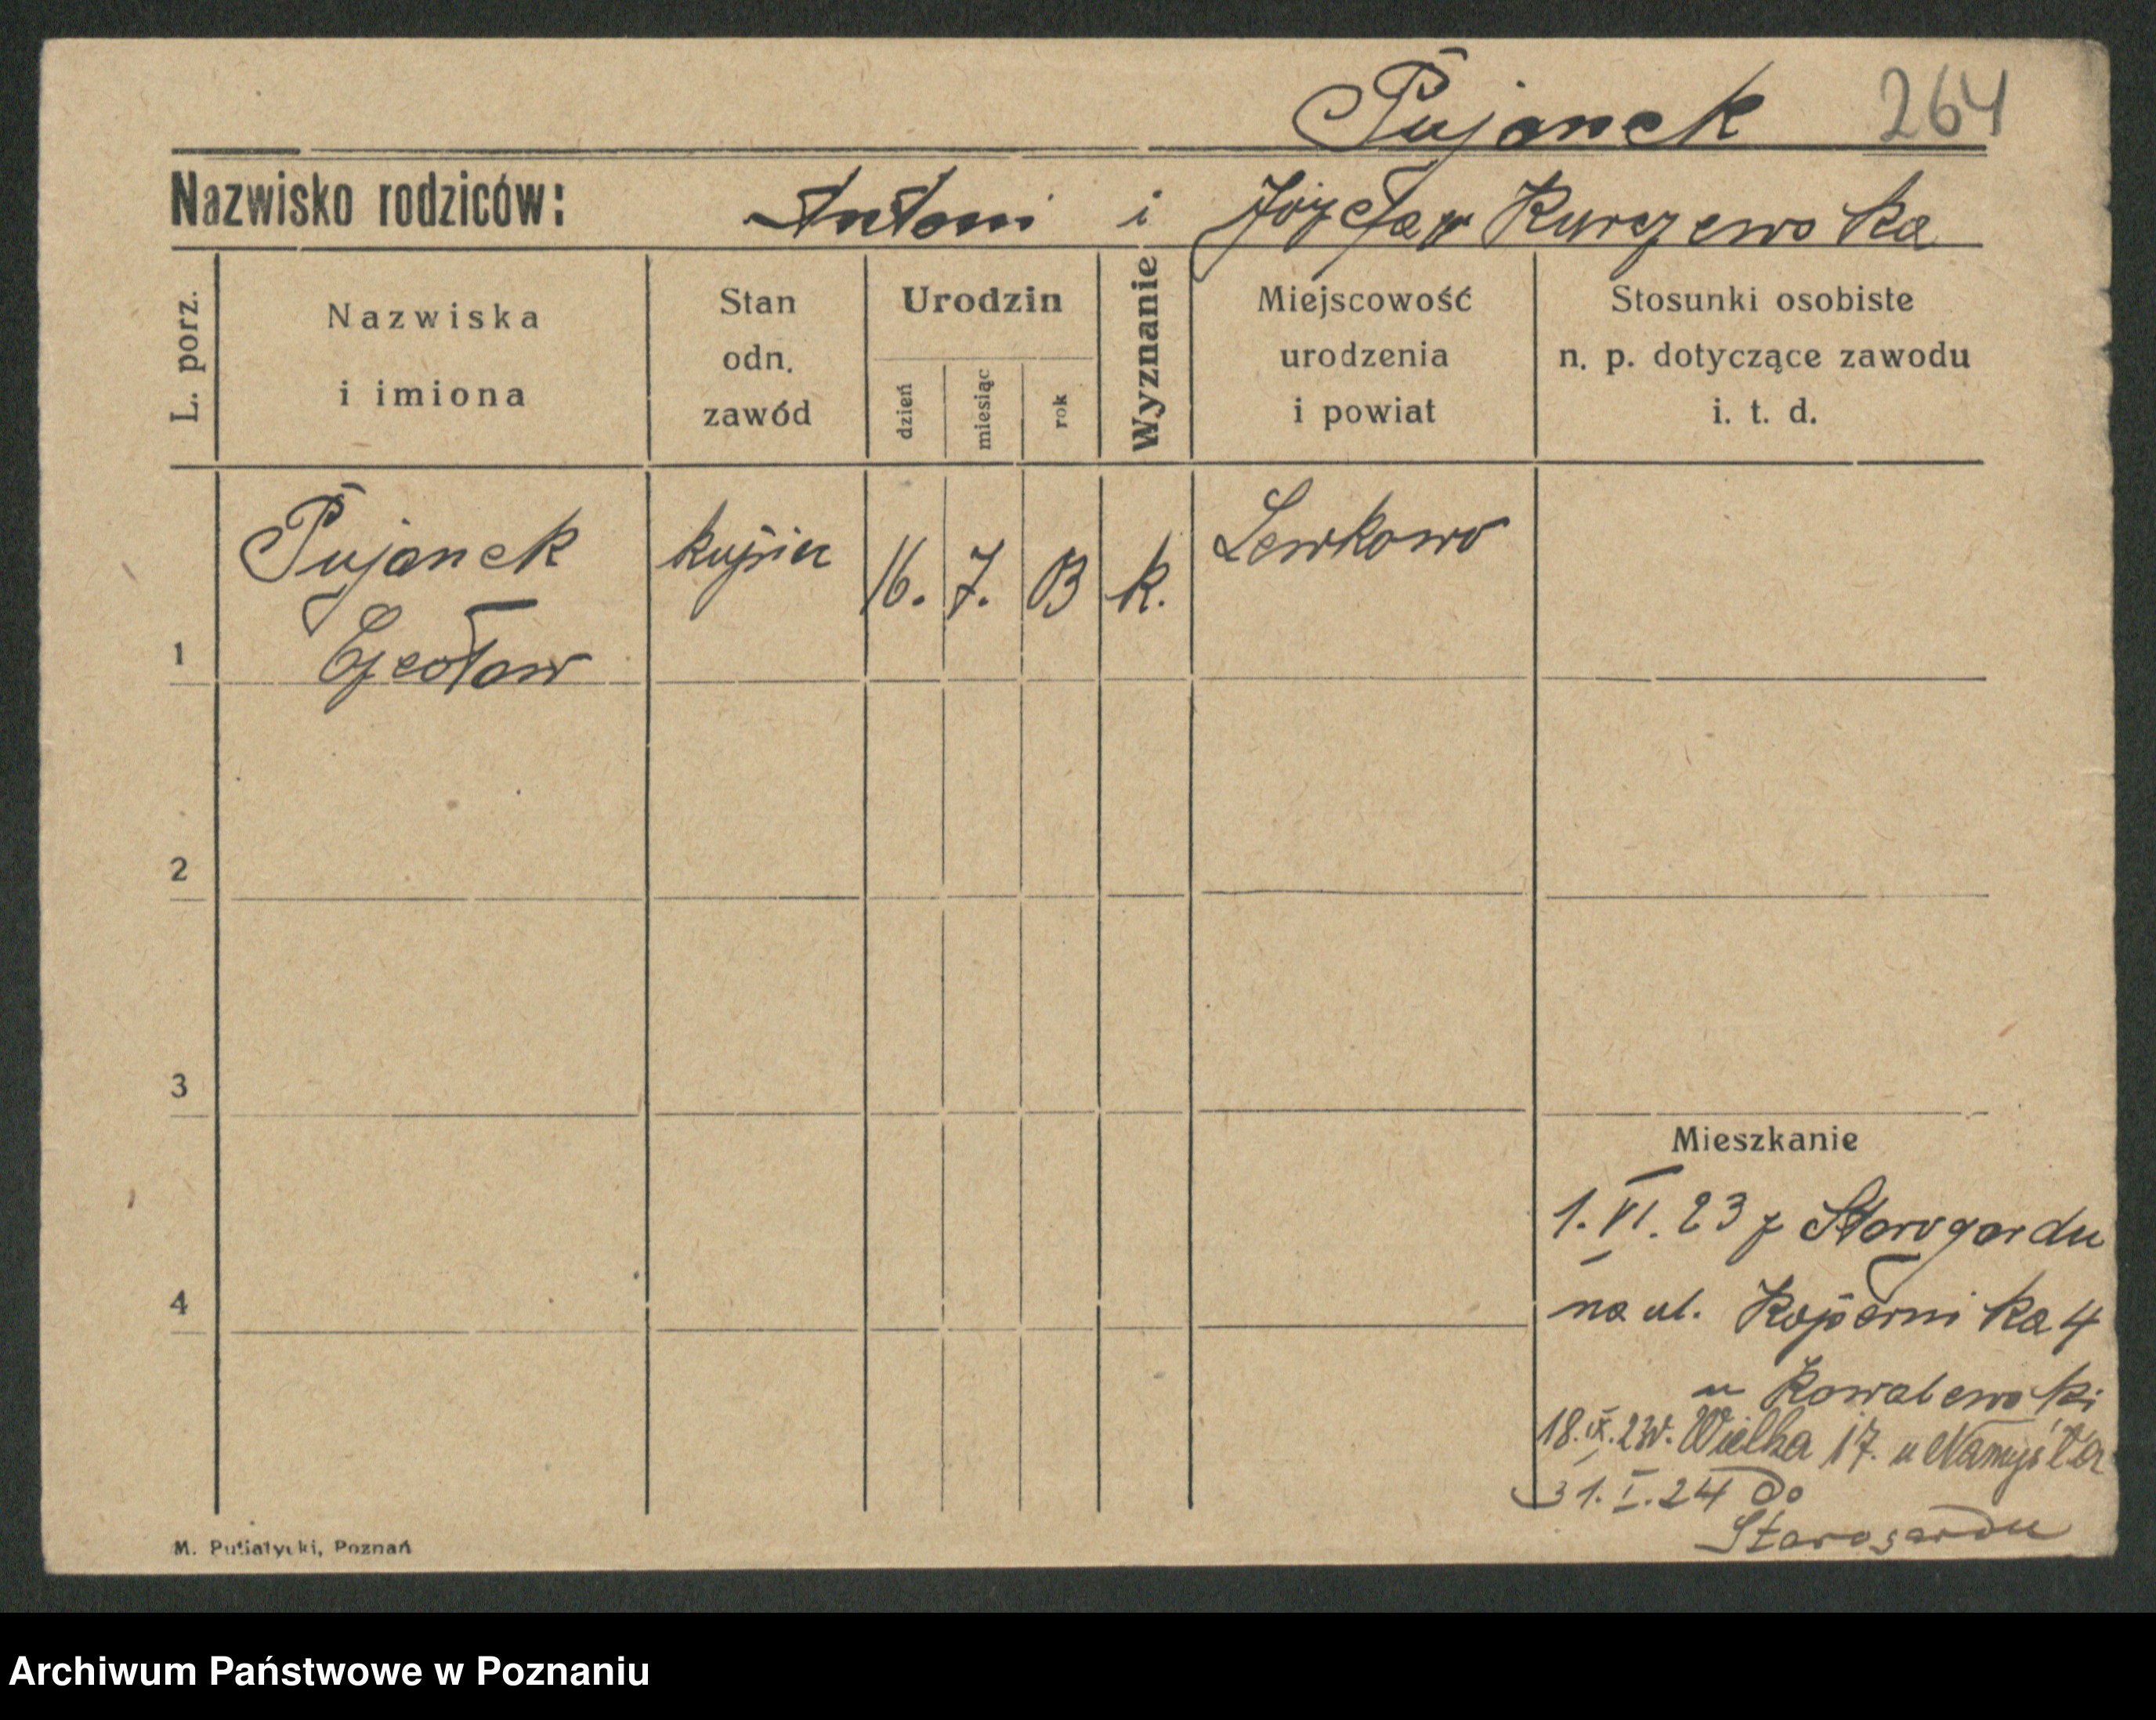 Pujanek 264
Nazwisko rodziców: Antoni i Józefa Kurczewska
L. porz.
Nazwiska
i imiona
Stan
odn.
zawód
Urodzin
dzień
miesiąc
rok
Wyznanie
Miejscowość
urodzenia
i powiat
Stosunki osobiste
n. p. dotyczące zawodu
i. t. d.
1
Pujanek
Czesław
kupiec
16. 7. 03 k.
Lewkowo
2
3
4
Mieszkanie
1. VI. 23 z Starogardu
na ul. Kopernika 4
u Kowalewski
18. IX. 23 Wielka 17. u
31. I. 24 do
Starogardu
M. Putiatycki, Poznań
Archiwum Państwowe w Poznaniu